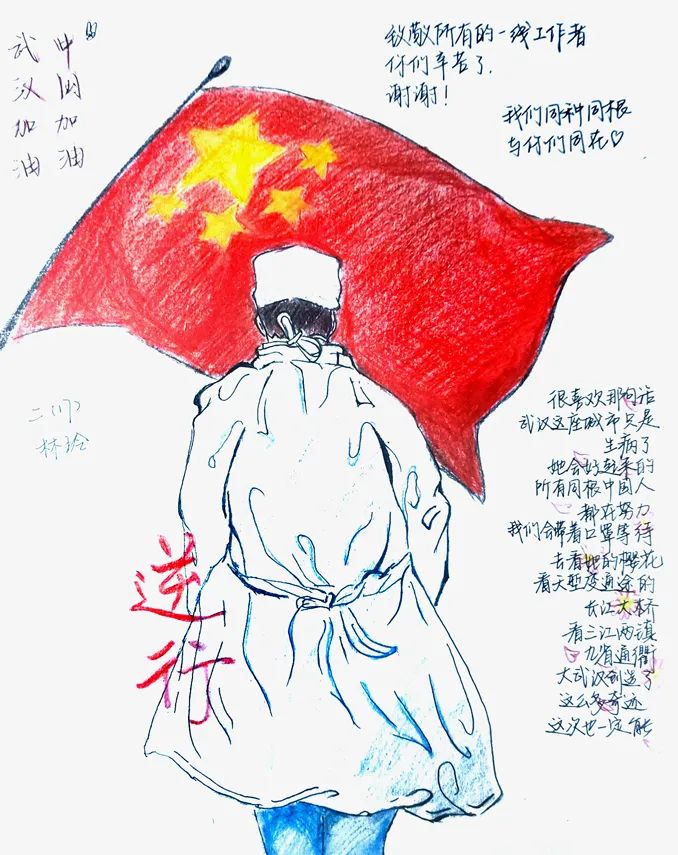 武汉加油
中国加油
致敬所有的一线工作者
你们辛苦了.
谢谢!
我们同种同根
与你们同在♡
二(17)
林
逆行
很喜欢那句话
武汉这座城市只是
生病了
她会好起来的
所有同根中国人
都在努力
我们会带着口罩等待
去看她的樱花
看天堑变通途的
长江大桥
看三江两镇
九省通衢
大武汉创造了
这么多奇迹
这次也一定能